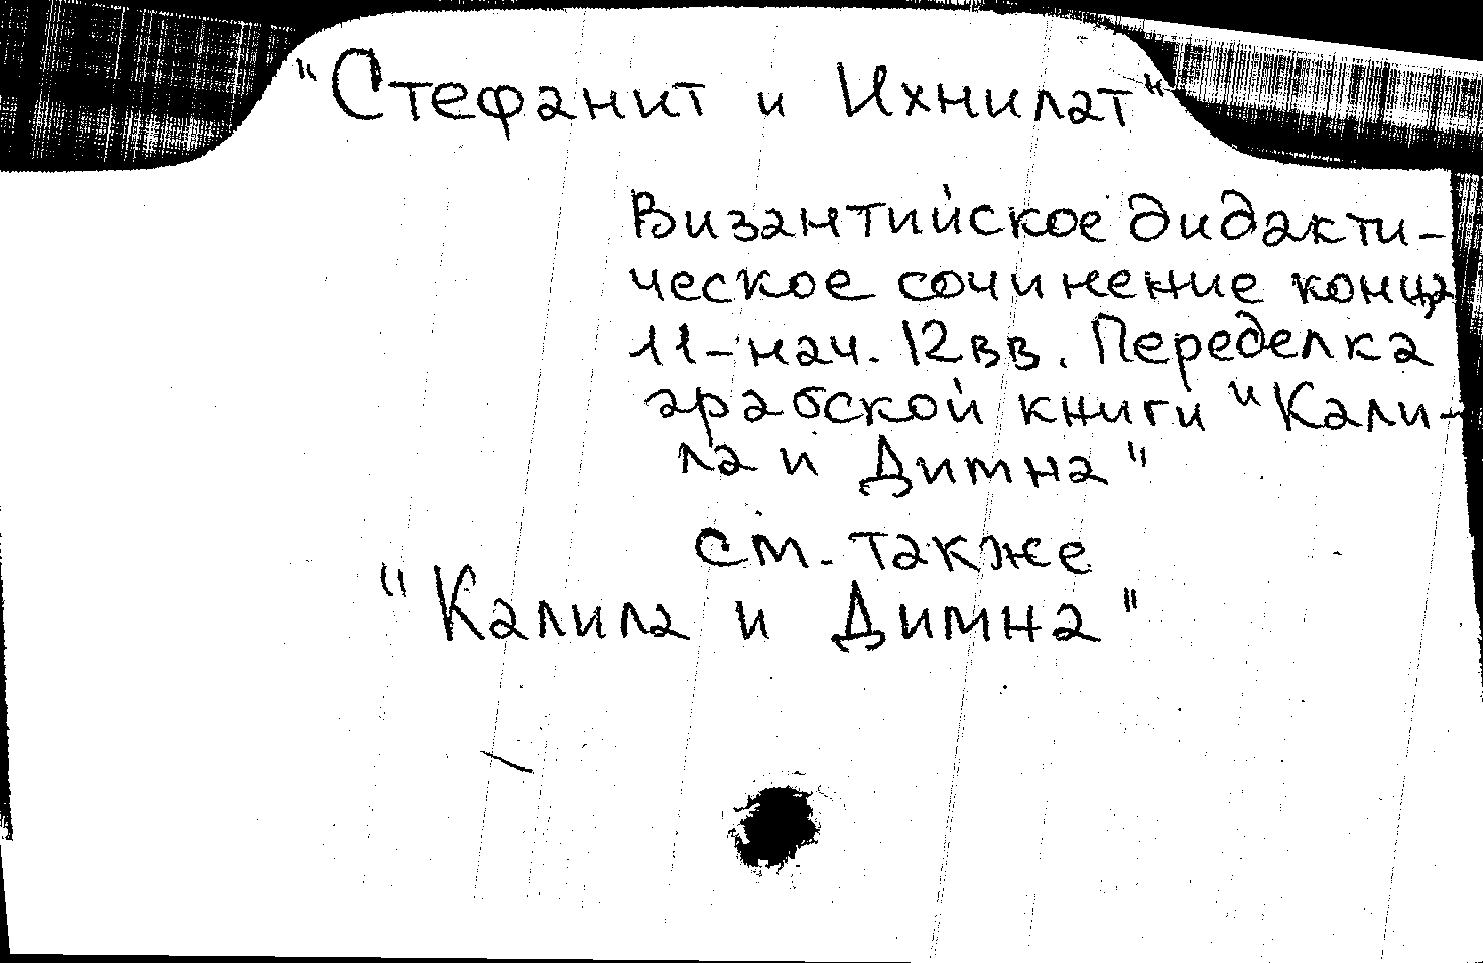 "Стефанит и Ихнилат"
Византийское дидакти-
ческое сочинение конца
11-нач. 12вв. Переделка
арабской книги "Кали-
ла и Димна"
см. также
"Калила и Димна"